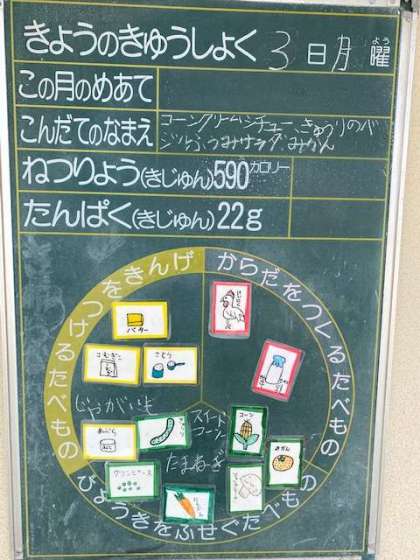 きょうのきゅうしょく 3日月曜
よう
この月のめあて
こんだてのなまえ コーンクリームシチュー、きゅうりのバ
ジルふうみサラダ、みかん
ねつりょう(きじゅん)590カロリー
たんぱく(きじゅん)22g
ねつをきんげ
つけるたべもの
からだをつくるたべもの
バター
こむぎこ
さとう
じゃがいも
スイート
コーン
コーン
たまねぎ
みかん
グリンピース
びょうきをふせぐたべもの